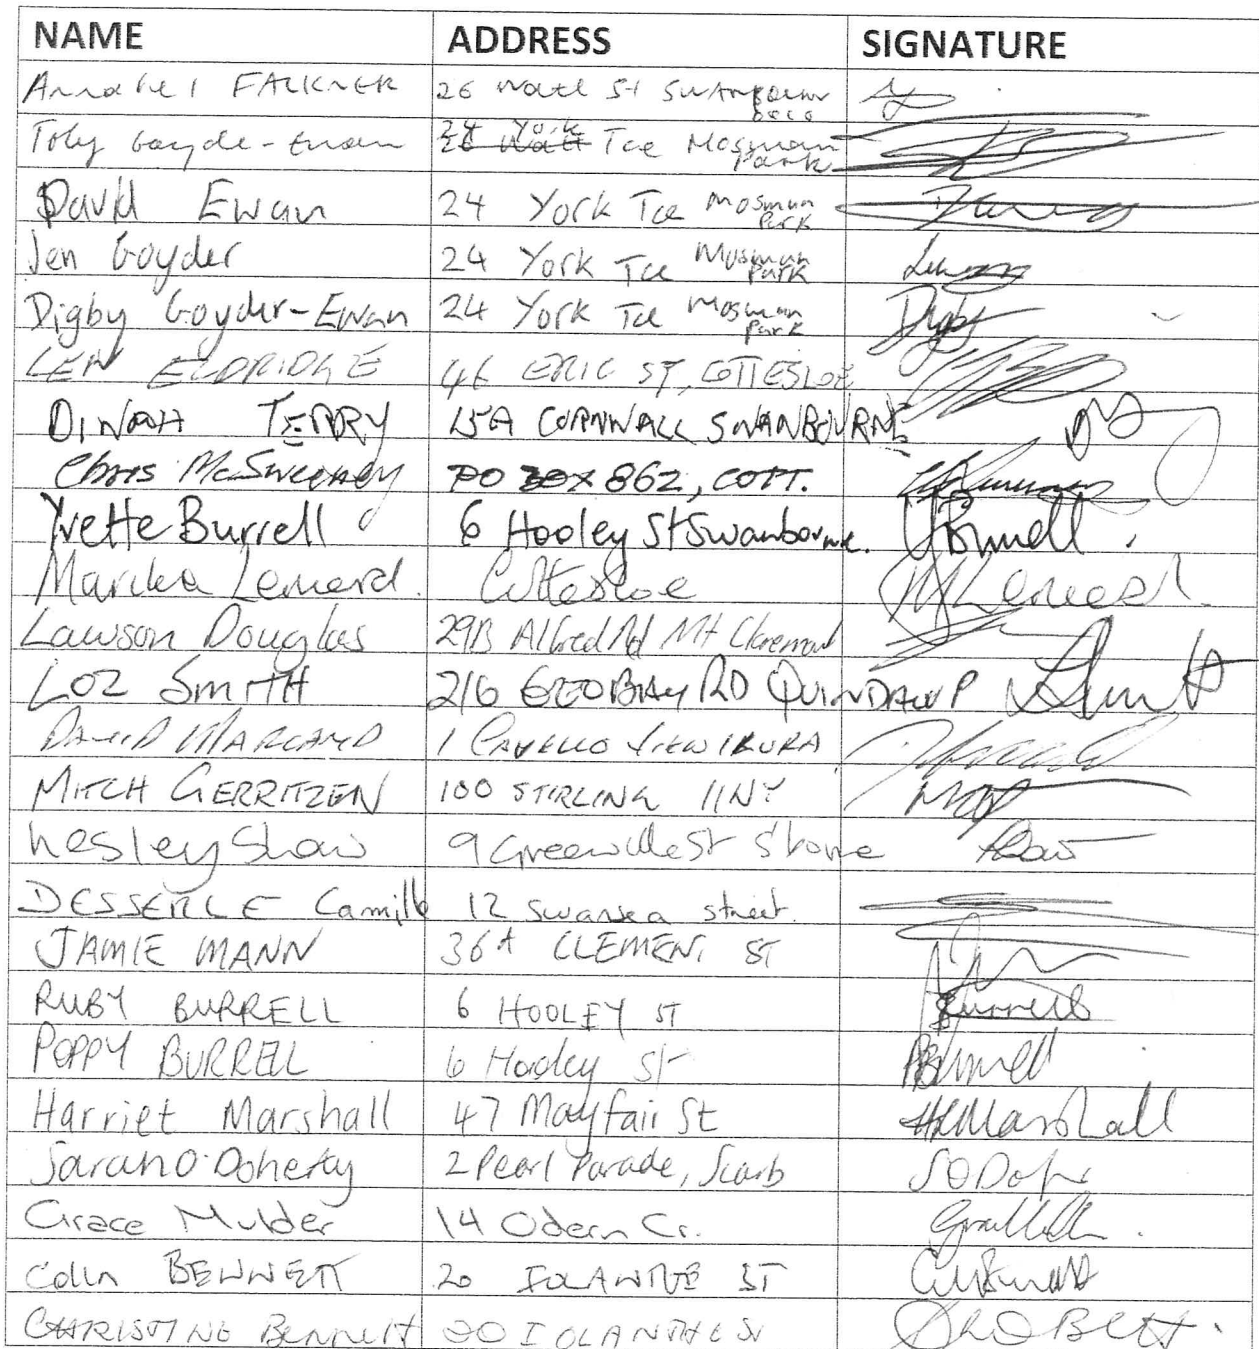 NAME ADDRESS SIGNATURE
Annabel FALKNER 26 Watt St Swanbourne
Toby Goyder-Ewan 24 York Tce Mosman Park
David Ewan 24 York Tce Mosman Park
Jen Goyder 24 York Tce Mosman Park
Digby Goyder-Ewan 24 York Tce Mosman Park Digby
LEN ELDRIDGE 46 ERIC ST, COTTESLOE
DINAH TERRY 15A CORNWALL SWANBOURNE
Chris McSweeney PO BOX 862, COTT.
Yvette Burrell 6 Hooley St Swanbourne. YBurrell
Marika Lenard. Cottesloe MLenard.
Lawson Douglas 29B Alfred Rd Mt Claremont
LOZ SmITH 216 GEOBAY RD QUINDALUP LSmith
DAVID MARLAND 1 View
MITCH GERRITZEN 100 STIRLING HWY
Lesley Shaw 9 Greenville St S'bone Shaw
DESSERLE Camille 12 Swansea street.
JAMIE MANN 36A CLEMENT ST
RUBY BURRELL 6 HOOLEY ST RBurrell
POPPY BURRELL 6 Hooley St PBurrell
Harriet Marshall 47 Mayfair St HMarshall
Sarah O'Doherty 2 Pearl Parade, Scarb
Grace Mulder 14 Odern Cr.
Colin BENNETT 20 IOLANTHE ST
CHRISTINE BENNETT 20 IOLANTHE St